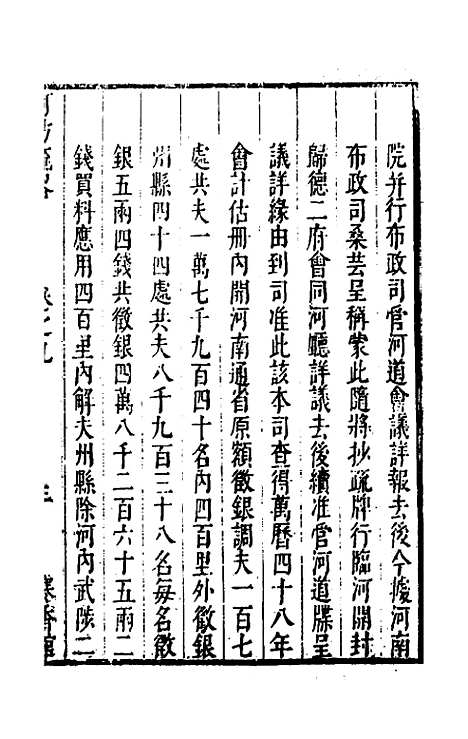 院并行布政司管河道會議詳報去後今據河南
布政司桑芸呈稱蒙此隨將抄疏牌行臨河開封
歸德二府會同河廳詳議去後續准管河道牒呈
議詳緣由到司准此該本司查得萬曆四十八年
會計估册內開河南通省原額徵銀調夫一百七
處共夫一萬七千九百四十名內四百里外徵銀
州縣四十四處共夫八千九百三十八名每名徵
銀五兩四錢共徵銀四萬八千二百六十五兩二
錢買料應用四百里內解夫州縣除河內武陟二
河防疏畧 卷之九 三